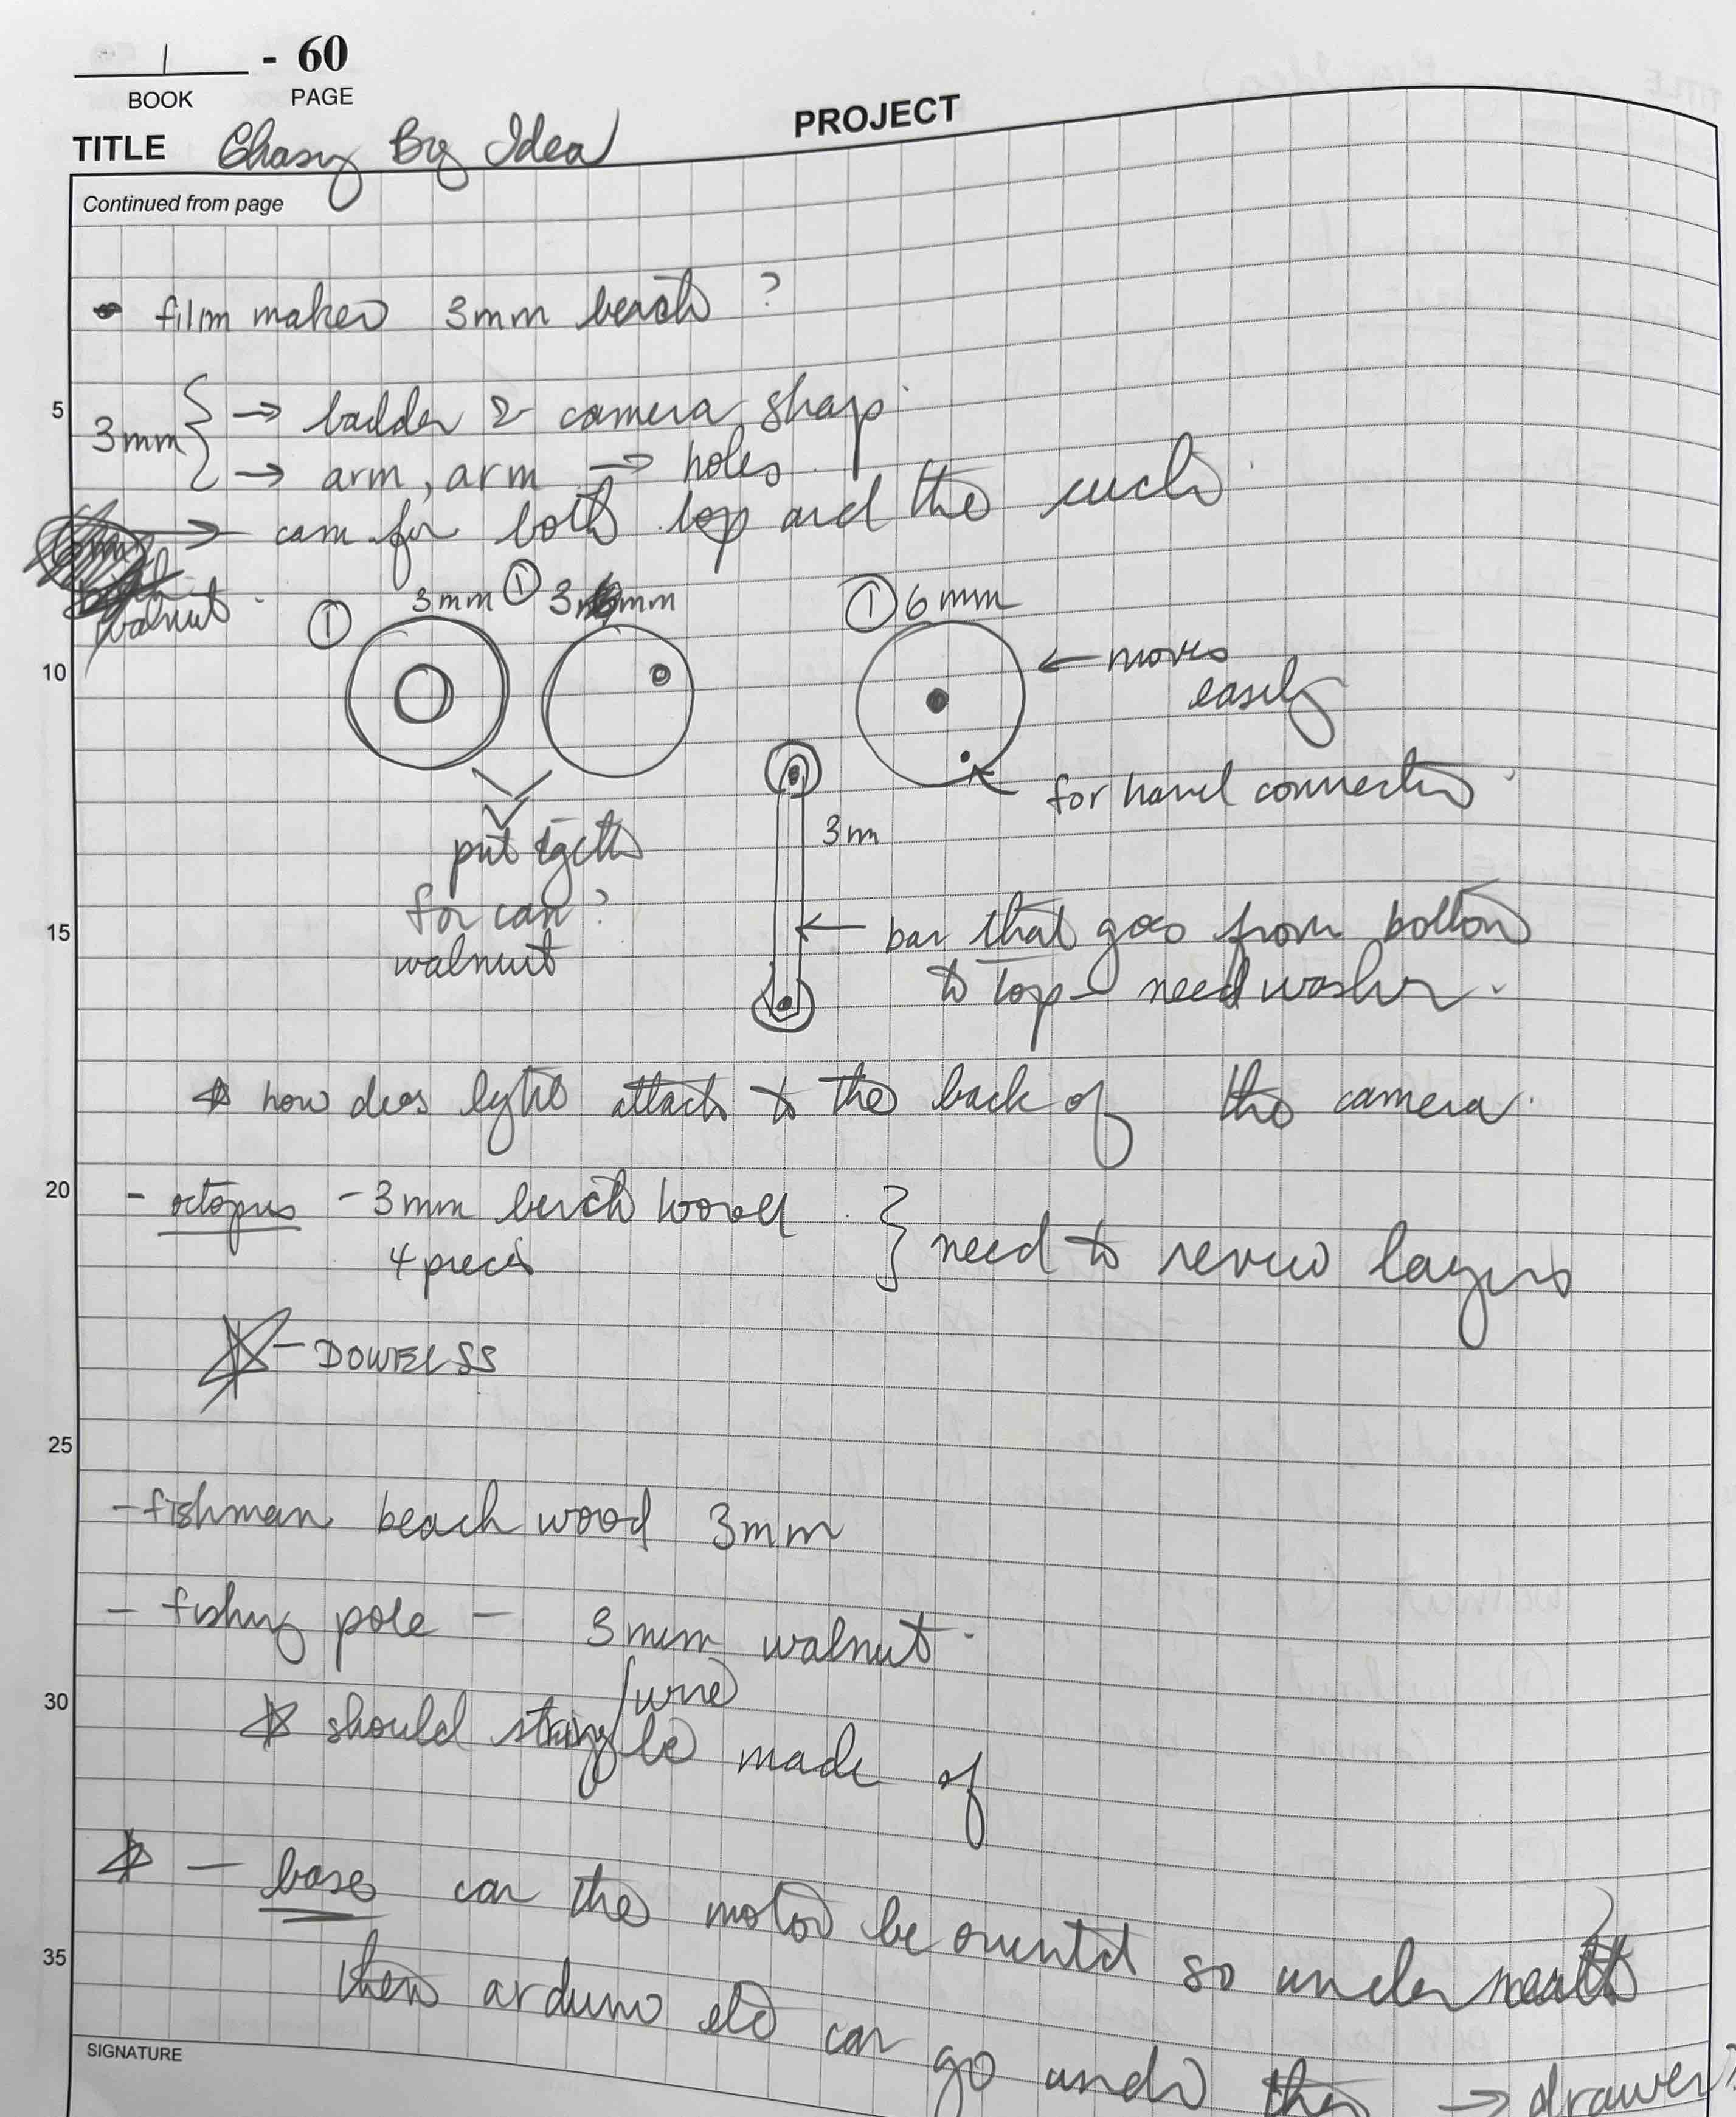 1 - 60
BOOK PAGE
PROJECT
TITLE Chasing Big Idea
Continued from page
film maker 3mm beach ?
5
3mm { → ladder & camera shap
→ arm, arm → holes
→ cam for both top and the
walnut
① 3mm ① 3mm ① 6mm
10
← moves
easily
for hand connection
3m
put togeth
for cam ?
walnut
15
← bar that goes from bottom
to top - need washer
* how does light attach to the back of the camera
20
- octopus - 3mm berch wood } need to review layers
4 pieces
* - DOWELSS
25
- fishman beach wood 3mm
- fishing pole - 3mm walnut
30
/wire
* should string be made of
* - base can the motor be orientd so underneath
35
then arduino etc can go undr then → drawer?
SIGNATURE